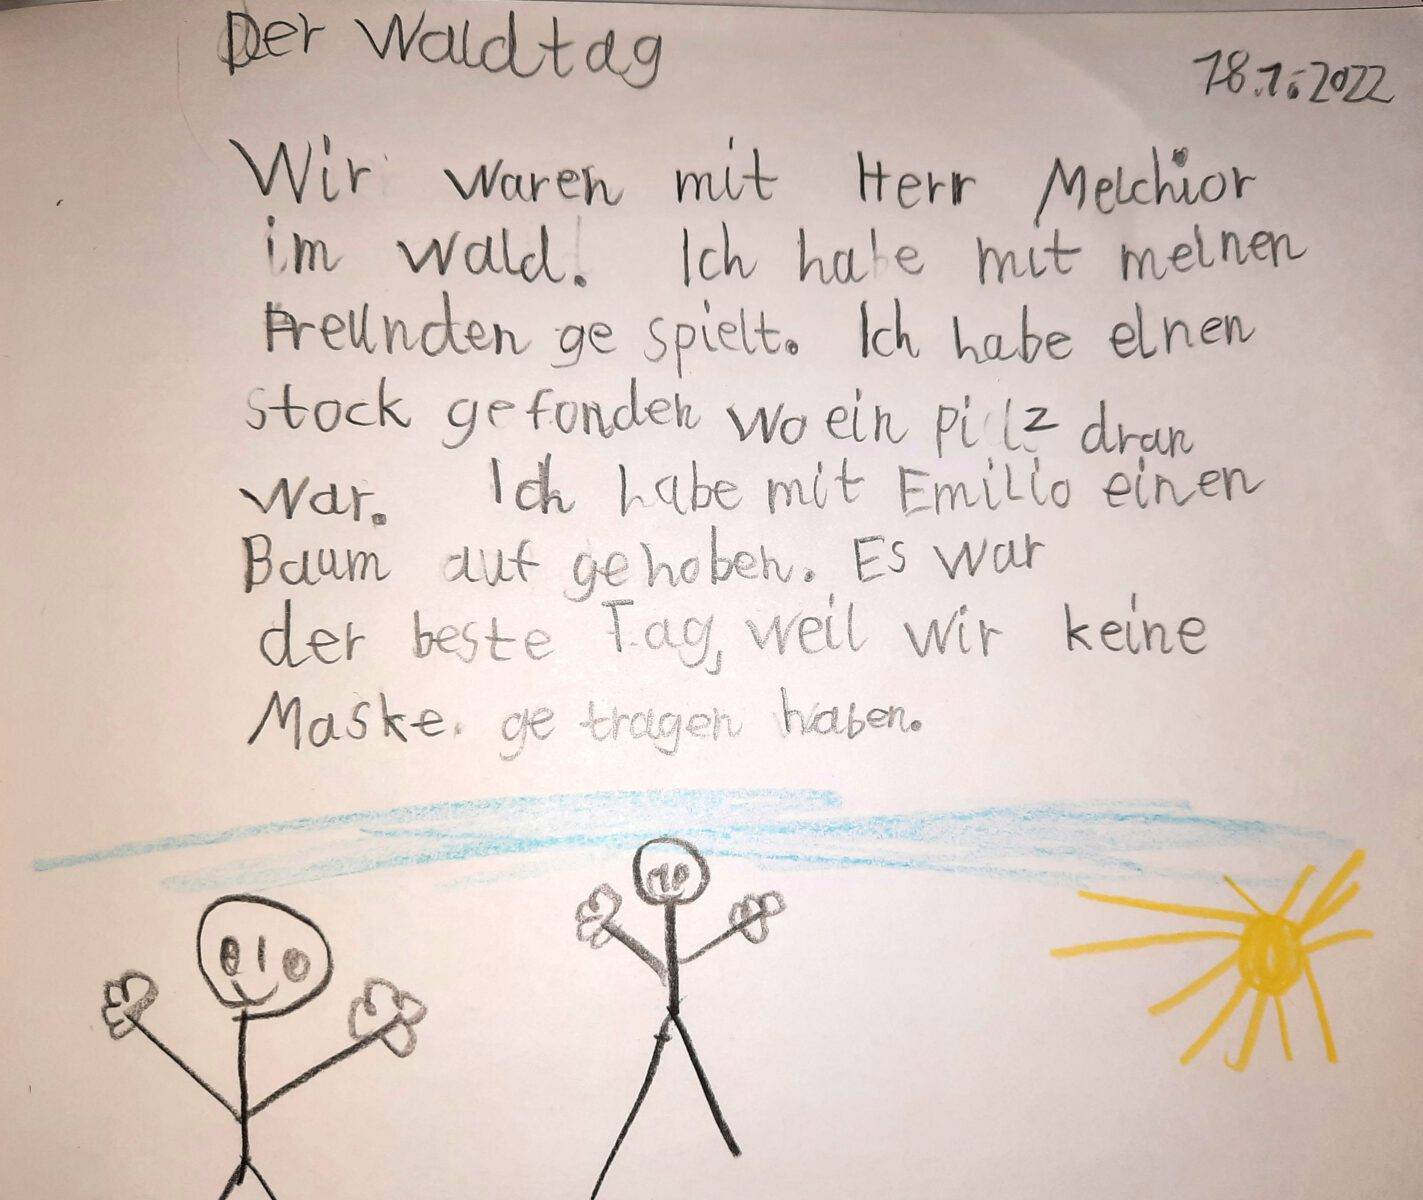 Der Waldtag
18.1.2022
Wir waren mit Herr Melchior
im Wald. Ich habe mit meinen
Freunden ge spielt. Ich habe einen
stock gefonden wo ein pilz dran
war. Ich habe mit Emilio einen
Baum auf gehoben. Es war
der beste Tag, weil wir keine
Maske. ge tragen haben.